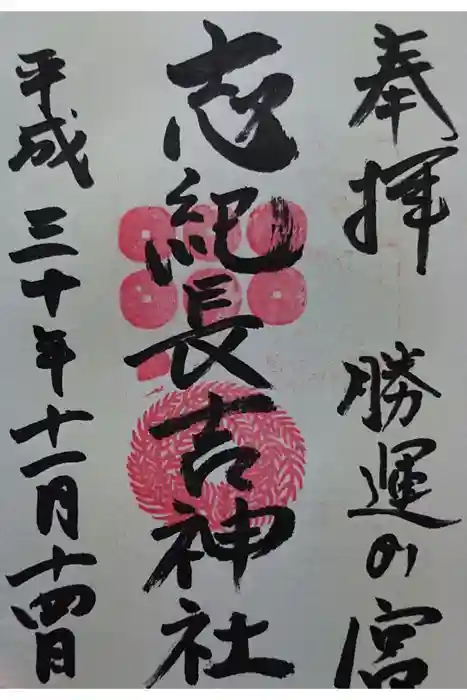 奉拝 勝運の宮
志紀長吉神社
平成三十年十一月十四日